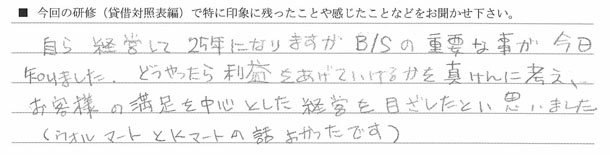 ■ 今回の研修（貸借対照表編）で特に印象に残ったことや感じたことなどをお聞かせ下さい。
自ら経営して25年になりますが B/Sの重要な事が今日
知りました。どうやったら利益をあげていけるかを真けんに考え、
お客様の満足を中心とした経営を目ざしたとい思いました
（ウオルマートとKマートの話よかったです）